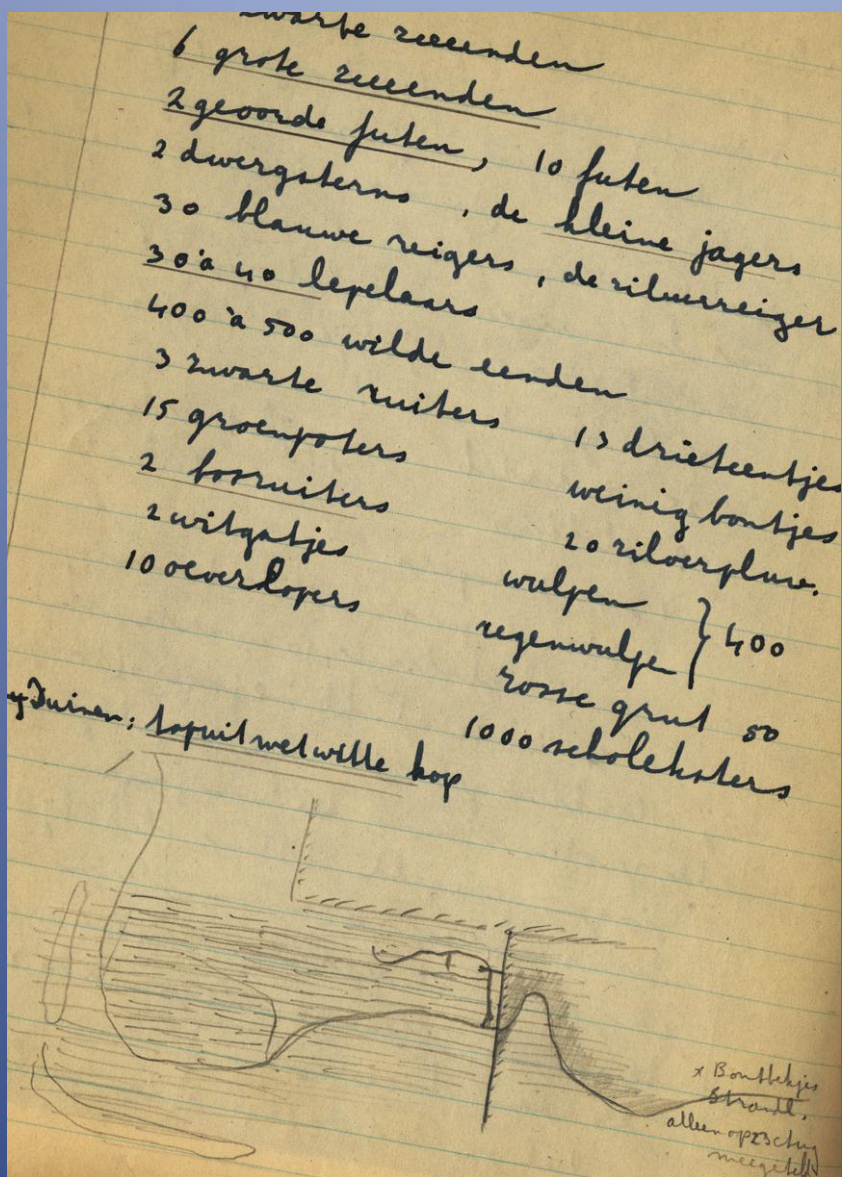 zwarte zeeeenden
6 grote zeeeenden
2 geoorde futen, 10 futen
2 dwergsterns, de kleine jagers
30 blauwe reigers, de zilverreiger
30 à 40 lepelaars
400 à 500 wilde eenden
3 zwarte ruiters
15 groenpoters
2 bosruiters
2 witgatjes
10 oeverlopers
13 drieteentjes
weinig bontjes
20 zilverpluv.
wulpen
regenwulpen } 400
rosse grut 50
1000 scholeksters
Duinen: tapuit met witte kop
x Bontbekjes
Strandl.
alleen op 23 Aug
meegeteld